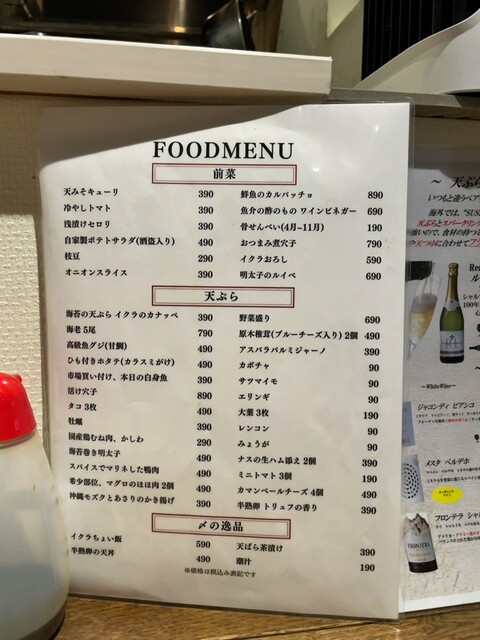 FOODMENU
前菜
天みそキューリ 390
冷やしトマト 390
浅漬けセロリ 390
自家製ポテトサラダ(酒盗入り) 490
枝豆 290
オニオンスライス 390
鮮魚のカルパッチョ 890
魚介の酢のもの ワインビネガー 690
骨せんべい(4月~11月) 190
おつまみ煮穴子 790
イクラおろし 590
明太子のルイベ 690
天ぷら
海苔の天ぷら イクラのカナッペ 390
海老 5尾 790
高級魚グジ(甘鯛) 490
ひも付きホタテ(カラスミがけ) 490
市場買い付け、本日の白身魚 390
活け穴子 890
タコ 3枚 490
牡蠣 390
国産鶏むね肉、かしわ 290
海苔巻き明太子 490
スパイスでマリネした鴨肉 490
希少部位、マグロのほほ肉 2個 490
沖縄モズクとあさりのかき揚げ 390
野菜盛り 690
原木椎茸(ブルーチーズ入り) 2個 490
アスパラパルミジャーノ 390
カボチャ 90
サツマイモ 90
エリンギ 90
大葉 3枚 190
レンコン 90
みょうが 90
ナスの生ハム添え 2個 390
ミニトマト 3個 190
カマンベールチーズ 4個 490
半熟卵 トリュフの香り 390
〆の逸品
イクラちょい飯 590
半熟卵の天丼 490
天ばら茶漬け 390
潮汁 190
※価格は税込み表記です
~ 天ぷら
いつもと違うペア
海外では、"SUS
浅漬とスパークリン
~WhiteWine~
ジャコンディ ビアンコ
メスタ ベルデホ
フロンテラ シャル